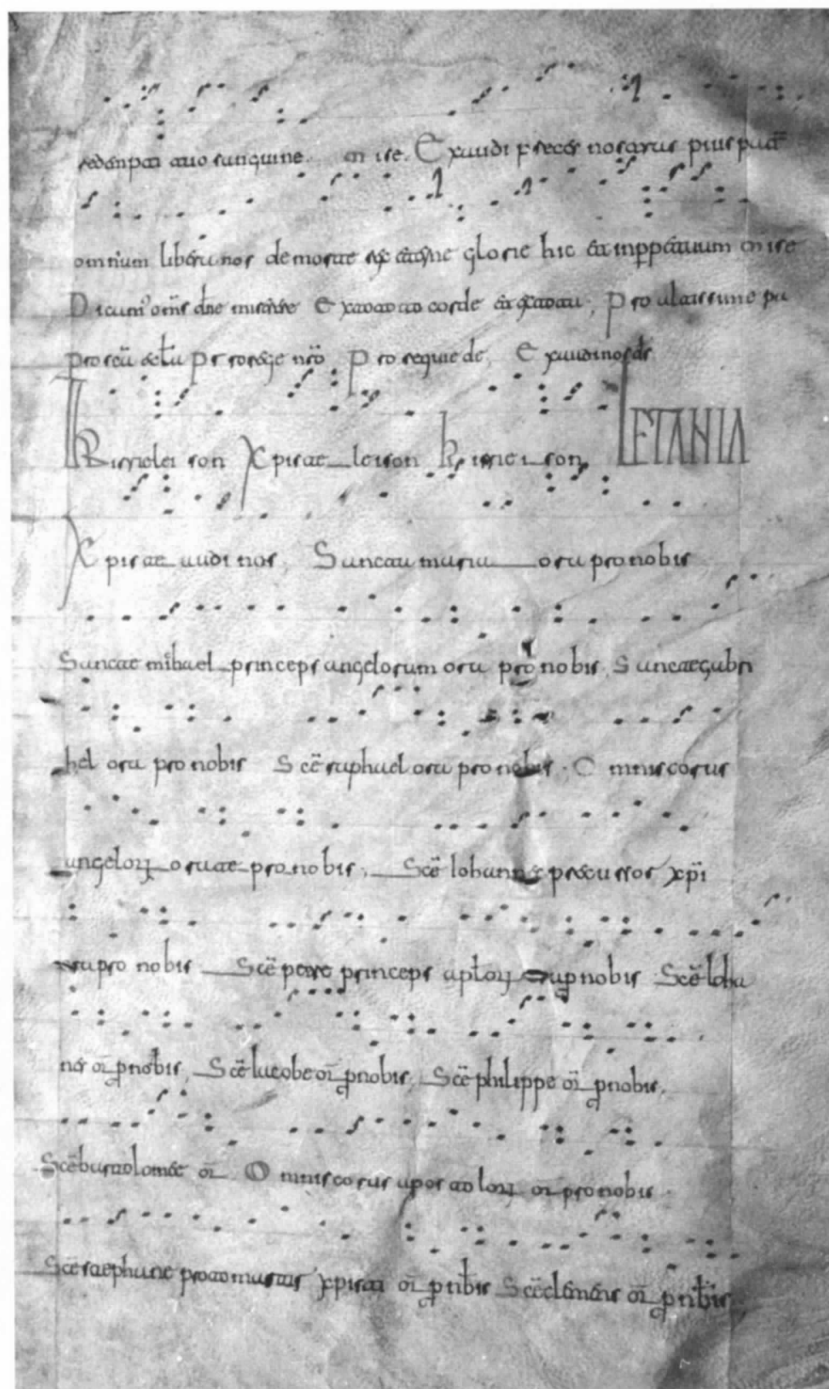 redempti tuo sanguine. mise. Exaudi preces nostras pius
omnium libera nos de morte eterne glorie hic et mise
Dicam' oms dne Ex toto corde et ex tota; Pro altissime pa
pro Pro requie de, Exaudi nos ds
Kirrieleison Xpiste leison Kirieleison LETANIA
Xpiste audi nos, Sancta maria ora pro nobis
Sancte mihael princeps angelorum ora pro nobis, Sancte gabri
hel ora pro nobis Scē raphael ora pro nobis. Omnis corus
angeloꝝ orate pro nobis, Scē Iohannes precussor xp̄i
ora pro nobis Scē petre princeps aptłoꝝ ora ꝓ nobis Scē Ioha
nes or̄ ꝓ nobis, Scē Iacobe or̄ ꝓ nobis, Scē philippe or̄ ꝓ nobis,
Scē bartolomee or̄ Omnis corus apostoloꝝ or̄ pro nobis.
Scē stephane protomartir xpisti or̄ ꝓ nobis Scē clemens or̄ ꝓ nobis,